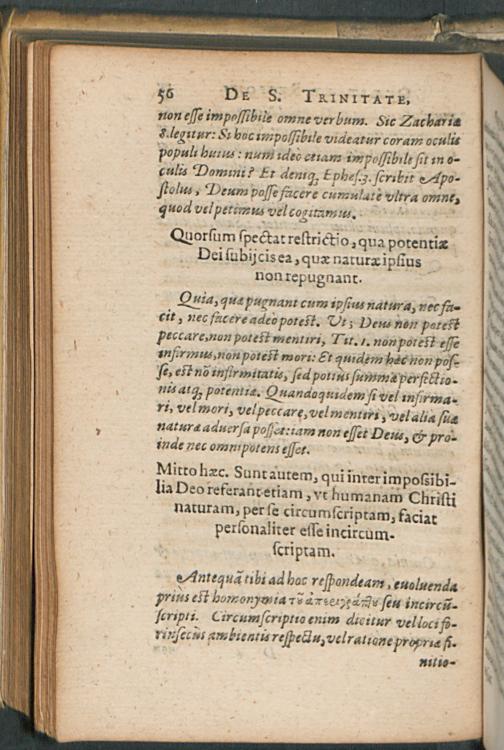 56 DE S. TRINITATE,
non esse impossibile omne verbum. Sic Zachariæ
8. legitur: Si hoc impossibile videatur coram oculis
populi huius: num ideo etiam impossibile sit in o-
culis Domini? Et deniq; Ephes. 3. scribit Apo-
stolus, Deum posse facere cumulatè vltra omne,
quod vel petimus vel cogitamus.
Quorsum spectat restrictio, qua potentiæ
Dei subijcis ea, quæ naturæ ipsius
non repugnant.
Quia, quæ pugnant cum ipsius natura, nec fa-
cit, nec facere adeo potest. Vt; Deus non potest
peccare, non potest mentiri, Tit. 1. non potest esse
infirmus, non potest mori: Et quidem hæc non pos-
se, est nō infirmitatis, sed potius summæ perfectio-
nis atq; potentiæ. Quandoquidem si vel infirma-
ri, vel mori, vel peccare, vel mentiri, vel alia suæ
naturæ aduersa posset: iam non esset Deus, & pro-
inde nec omnipotens esset.
Mitto hæc. Sunt autem, qui inter impossibi-
lia Deo referant etiam, vt humanam Christi
naturam, per se circumscriptam, faciat
personaliter esse incircum-
scriptam.
Antequā tibi ad hoc respondeam, euoluenda
prius est homonymia τοῦ ἀπεριγράπτου seu incircū-
scripti. Circumscriptio enim dicitur vel loci fo-
rinsecus ambientis respectu, vel ratione propriæ fi-
nitio-